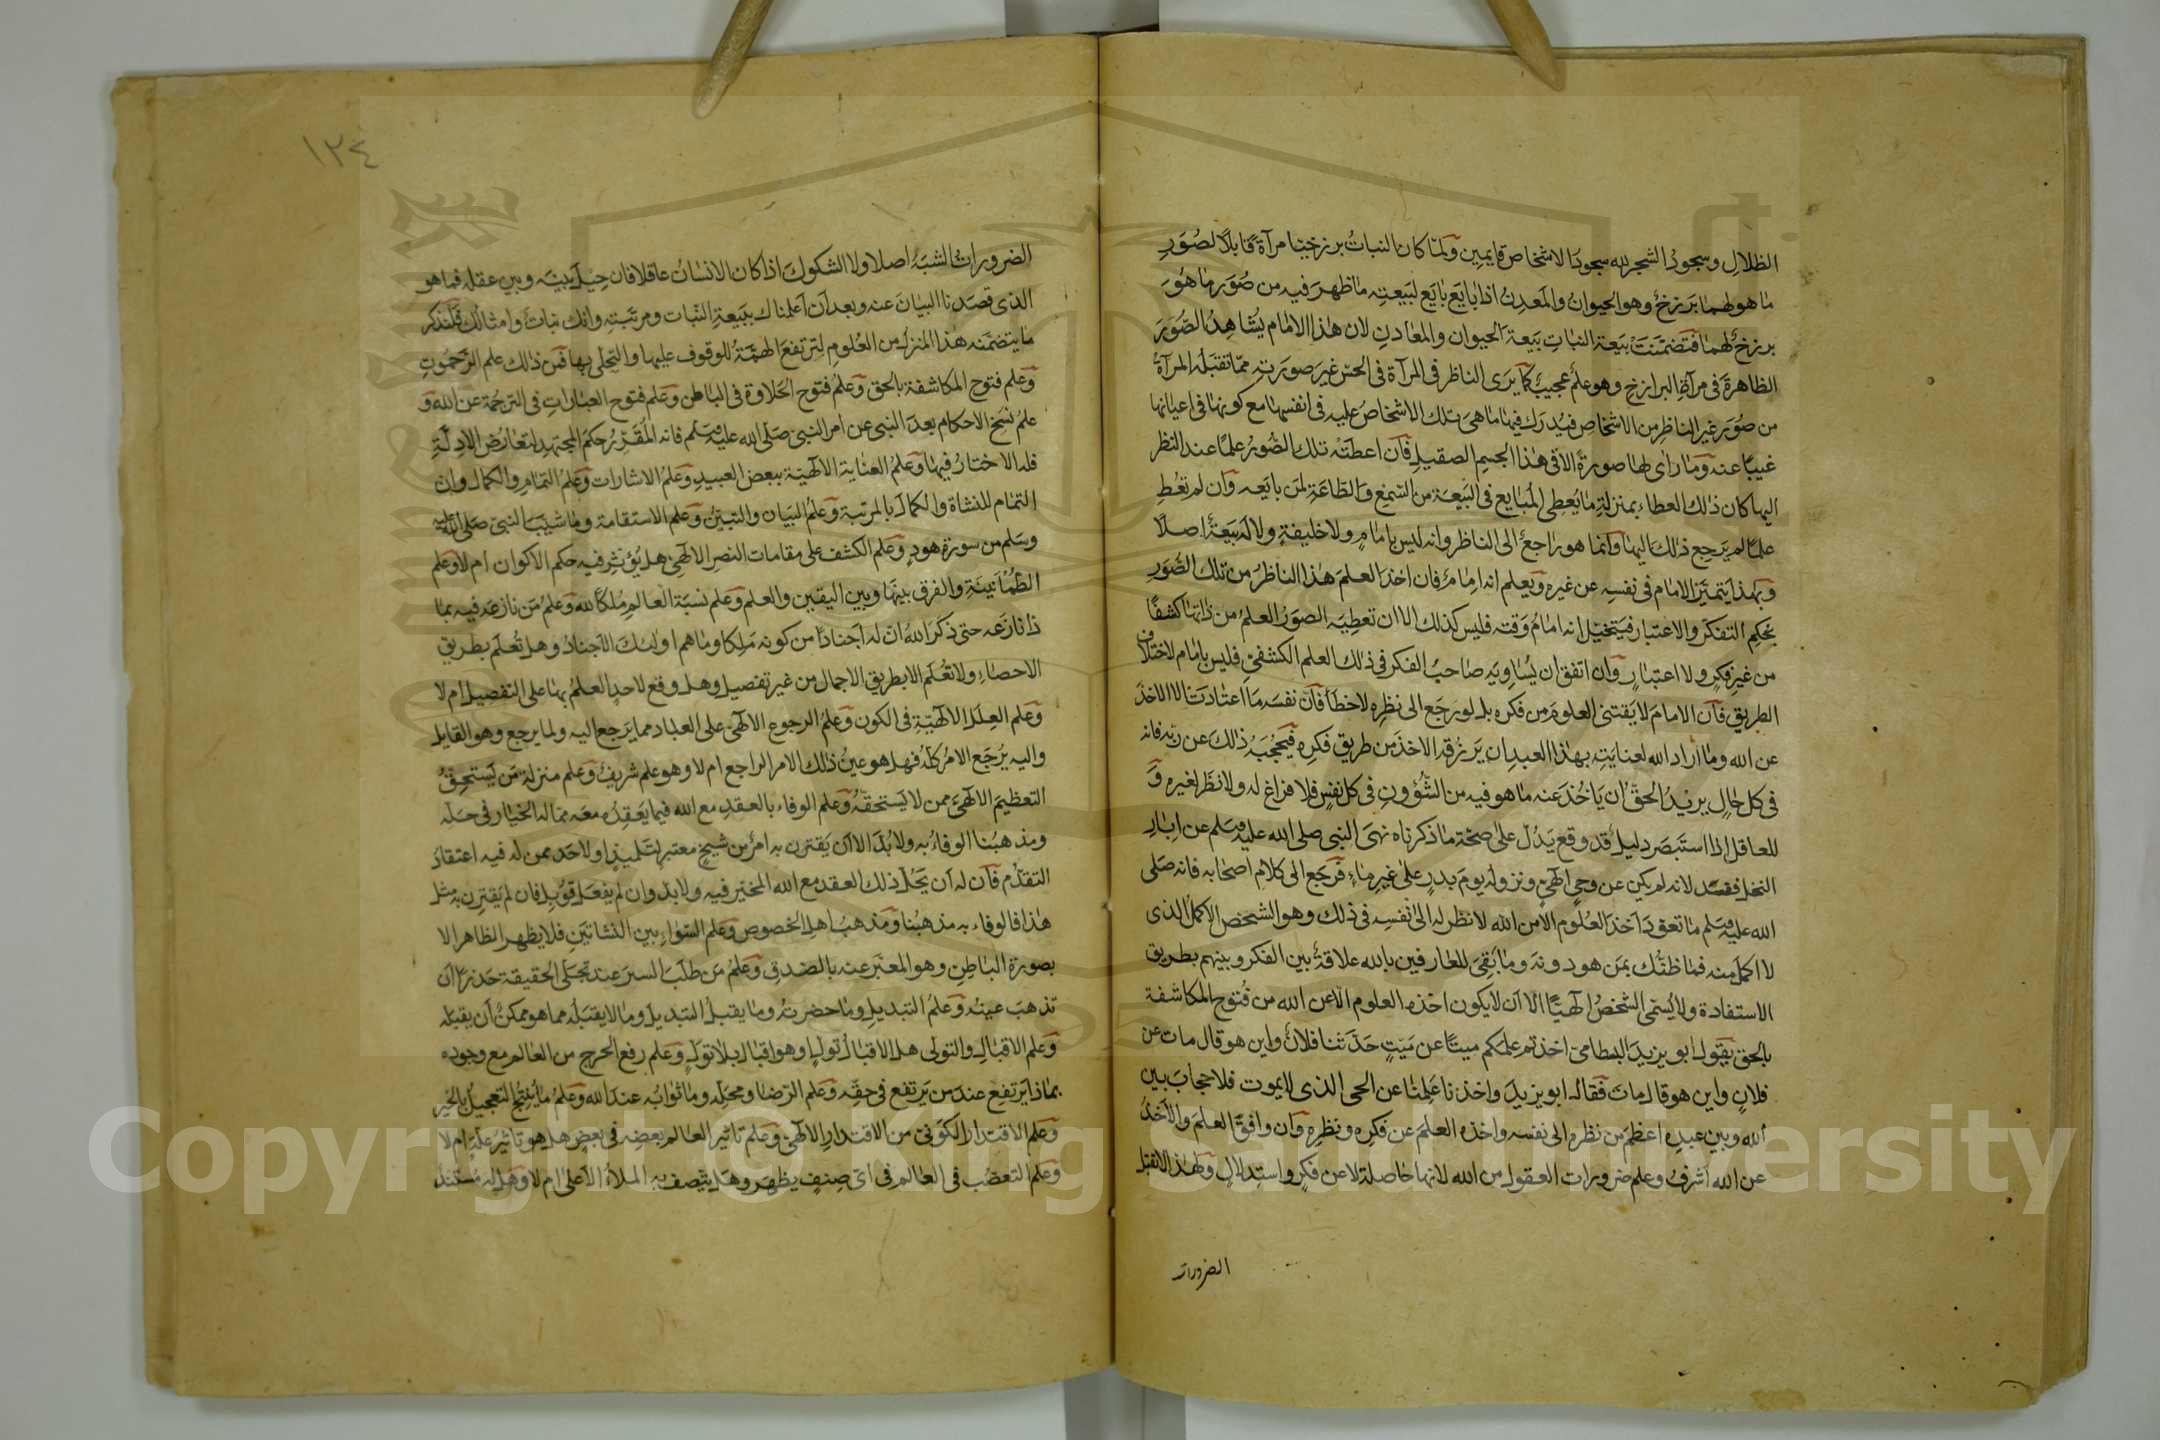 الظلالِ وسجودُ الشجرِ لله سجودَ الاشخاص قايمين وَلمّا كان النباتُ برزخيا مرآةً قابلاً لصُوَرِ
ما هو لهما بَرزخٌ وهو الحيوانُ والمَعدِنُ اذا بايَع بايَع لبَيعتِه ما ظهرَ فيه من صُوَر ما هُوَ
برزخٌ لهما فتضمّنَتْ بيَعة النباتِ بيَعة الحيوان والمعادنِ لان هذا الامام يُشاهِدُ الصُّوَرَ
الظاهرةَ في مرآة البرازخِ وهو علمٌ عجيبٌ كما يَرَى الناظر في المرآة في الحسّ غيرَ صورَتِه ممّا تقبَلُه المرآةُ
من صُوَر غيرِ الناظرِ من الاشخاصِ فيُدرَك فيها ما هىَ تلك الاشخاصُ عليه في انفسِها مع كونها في اعيانها
غيبًا عنه وَما راى لها صورةً الا في هذا الجسمِ الصقيلِ فآن اعطَتْه تلك الصُّورُ علمًا عند النظر
اليها كان ذلك العطاء بمنزلةِ ما يُعطِى المُبايع في البَيعة من السَّمْعِ وَالطّاعَةِ لمَن بايَعه وَان لم تعُطِ
علمًا لم يَرجع ذلك اليها وَانما هو راجعٌ الى الناظر وانه ليس بامامٍ ولا خليفةٍ ولا لَه بَيعةٌ اصلًا
وَبهذا يَتميَّز الامام في نفسِه عن غيره وَيَعلم انه اِمامٌ فان اخذ العلم هذا الناظرُ من تلك الصُّوَر
بحُكمِ التفكّر والاعتبار فيَتخيّل انه امامُ وَقته فليس كذلك الا ان تعطِيَه الصوَرُ العلمَ من ذاتها كشفًا
من غير فكرٍ ولا اعتبارٍ وَان اتفق ان يُساويَه صاحبُ الفكر في ذلك العلم الكشفيّ فليس بامام لاختلاف
الطريقِ فآن الامامَ لا يَقتنى العلومَ من فكره بل لو رجَع الى نظرِه لاخطأ فآن نفسَه ما اعتادَت الا الاخذَ
عن الله وما أراد الله لعنايتِه بهذا العبدِ ان يَرزُقه الاخذَ من طريق فكرِه فيحجُبَه ذلكَ عن ربّه فانه
في كل حالٍ يريدُ الحقّ ان يَاخُذ عنه ما هو فيه من الشُّؤونِ في كل نفَسٍ فلا فراغ له ولا نظَر لغيره وَ
للعاقل اذا استَبصر دليلٌ قد وقع يَدُل على صحّة ما ذكرناه نهىَ النبي صلى الله عليه وسَلم عن ابارِ
النخل ففسَد لانه لم يكن عن وحيٍ الهىٍّ ونزوله يومَ بدرٍ على غيرِ ماءٍ فرَجَع الى كلام اصحابه فانه صَلى
الله عليه وسَلم ما تعوّدَ اَخذَ العُلُوم الا من الله لا نظَر له الى نفسِه في ذلك وهو الشخص الاكملُ الذى
لا اكملَ منه فما ظنّك بمَن هو دونه وما بَقِىَ للعارفين بالله علاقةٌ بين الفكر وبينهم بطريق
الاستفادة ولا يُسَمّى الشخصُ الهيًّا الا اَن لا يكون اخذه العلوم الا عن الله من فُتوح المكاشفة
بالحق يَقول ابو يزيدَ البسطامىّ اخذتم علمكم ميتًا عن مَيتٍ حَدّثنا فلانٌ واين هو قال مات عن
فلانٍ واين هو قال ماتَ فقال ابو يزيدَ واخذنا عِلمنا عن الحى الذى لا يموت فلا حجابَ بين
الله وبين عبدِه اعظمَ من نظره الى نفسه واخذِه العلمَ عن فكرِه ونظرِه وَان وافقَ العلمَ والاَخذُ
عن الله اَشرفُ وعلم ضروراتِ العقول من الله لانها حاصلة لا عن فكرٍ واستدلالٍ وَلهذا لا تقبَل
الضرورات
١٢٤
الضروراتُ الشبَهَ اصلا ولا الشكوكَ اذا كان الانسانُ عاقلا فان حِيلَ بينَه وبين عقلِه فما هو
الذى قصَدنا البيانَ عنه وبعد اَن اَعلمناك ببَيعة النّبات ومرتَبتِه وانك نباتٌ وامثالك فلنذكر
ما يتضمّنه هذا المنزلُ من العُلُوم لتَرتفعَ الهمّةُ للوقوف عليها والتحلّى بها فمن ذلك علم الرَّحموتِ
وَعلم فتوح المكاشفة بالحق وَعلمُ فتوح الحَلاوة في الباطن وَعلم فتوح العبَاراتِ في الترجمة عن الله وَ
علمُ نسخ الاحكام بعدَ النبى عن امر النبىّ صَلى الله عليه وسَلم فانه المُقَرِّرُ حكمَ المجتهد لتعَارُض الادِلّةِ
فله الاختارُ فيها وَعلمُ العنايَة الالهيّة ببعض العبيدِ وَعلمُ الاشارات وَعلمُ التمامِ والكمال وان
التمام للنشاة والكمالَ بالمرتبة وَعلمُ البَيان والتبيّن وَعلم الاستقامة وما شيّبَ النبىّ صَلى الله عليه
وسَلم من سورة هودٍ وَعلم الكشف على مقامات النصرِ الالهىّ هل يؤثر فيه حكم الاكوان ام لا وَعلم
الطُّمانِينَةِ والفرق بينها وبين اليقين والعلم وَعلم نسبَة العالمِ مُلكًا لله وَعلمُ مَن نازعَه فيه بما
ذا نازَعه حتى ذكرَ اللهُ انّ له اَجنادًا من كونه مَلِكا وما هم اولئك الاَجنادُ وهل تُعلَم بطريق
الاحصاءِ ولا تُعلَم الا بطريق الاجمال من غير تفصيل وهل وقع لاحدٍ العلمُ بها على التفصيل ام لا
وَعلم العِلَل الالهيّة في الكون وَعلمُ الرجوع الالهىّ على العباد مما يَرجع اليه ولما يرجع وهو القايل
واليه يُرجَع الامرُ كله فهل هو عينُ ذلك الامر الراجع ام لا وهو علم شريفٌ وَعلم منزلة مَن يَستحِقُّ
التعظيمَ الالهىَّ ممن لا يَستحقّهُ وَعلم الوفاء بالعقدِ مع الله فيما يَعقِدُه معَه مما له الخيَار في حَلّه
ومذهبُنا الوفاءُ به ولا بُدّ الا اَن يَقترن به امرٌ من شيخٍ معتبرٍ لتلميذٍ اولاحَدٍ ممن له فيه اعتقادَ
التقدّم فآن له اَن يَحُلّ ذلك العقد مع الله المخيّر فيه ولا بد وان لم يفعَل قُوبِل فان لم يَقترن به مثل
هذا فالوفاء به مذهبُنا وَمذهبُ اهل الخصوص وَعلم السّواء بين النشاتين فلا يظهر الظاهر الا
بصورة الباطِنِ وهو المعبَّر عنه بالصّدق وَعلمُ مَن طلَب السترَ عند تجلّى الحقيقة حَذرًا اَن
تذهبَ عينُه وَعلمُ التبديلِ وما حضرتُه وما يقبلُ التبديلَ وما لا يقبَلُه مما هو ممكنٌ اَن يقبَله
وَعلم الاقبالِ والتولّى هل الاقبالُ تولٍّ او هو اقبال بلا تولٍّ وَعلم رفع الحرج من العالم مع وجودِه
بماذا يَرتفع عند مَن يَرتفع في حقّه وَعلم الرّضا ومحلّه وما ثوابُه عند الله وَعلمُ ما يُنتِجُ التعجيلُ بالخير
وَعلم الاقتدارِ الكَونىّ من الاقتدارِ الالهىّ وَعلم تاثير العالم بعضِه في بعضٍ هل هو تاثيرُ علّةٍ ام لا
وَعلم التعصّب في العالم في اىّ صِنفٍ يظهر وهل يتّصف به الملاءُ الاَعلى ام لا وَهل له مُستَندٌ
Copyright © King Saud University